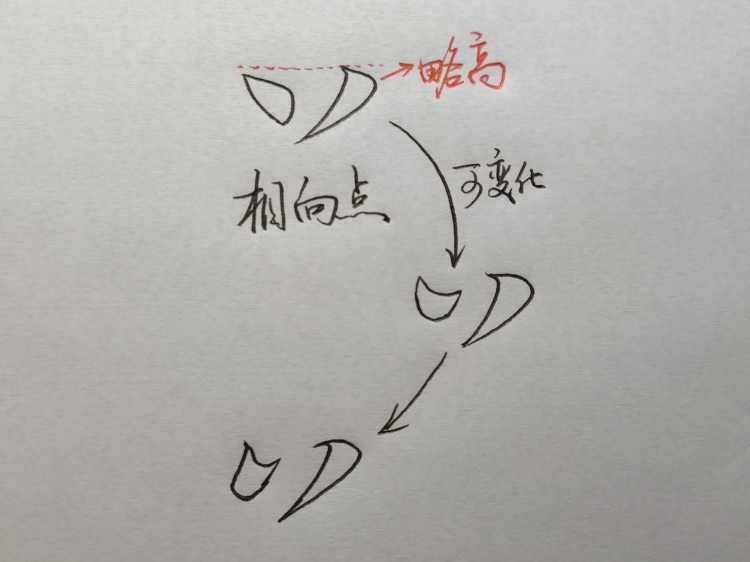 略高
可变化
相向点